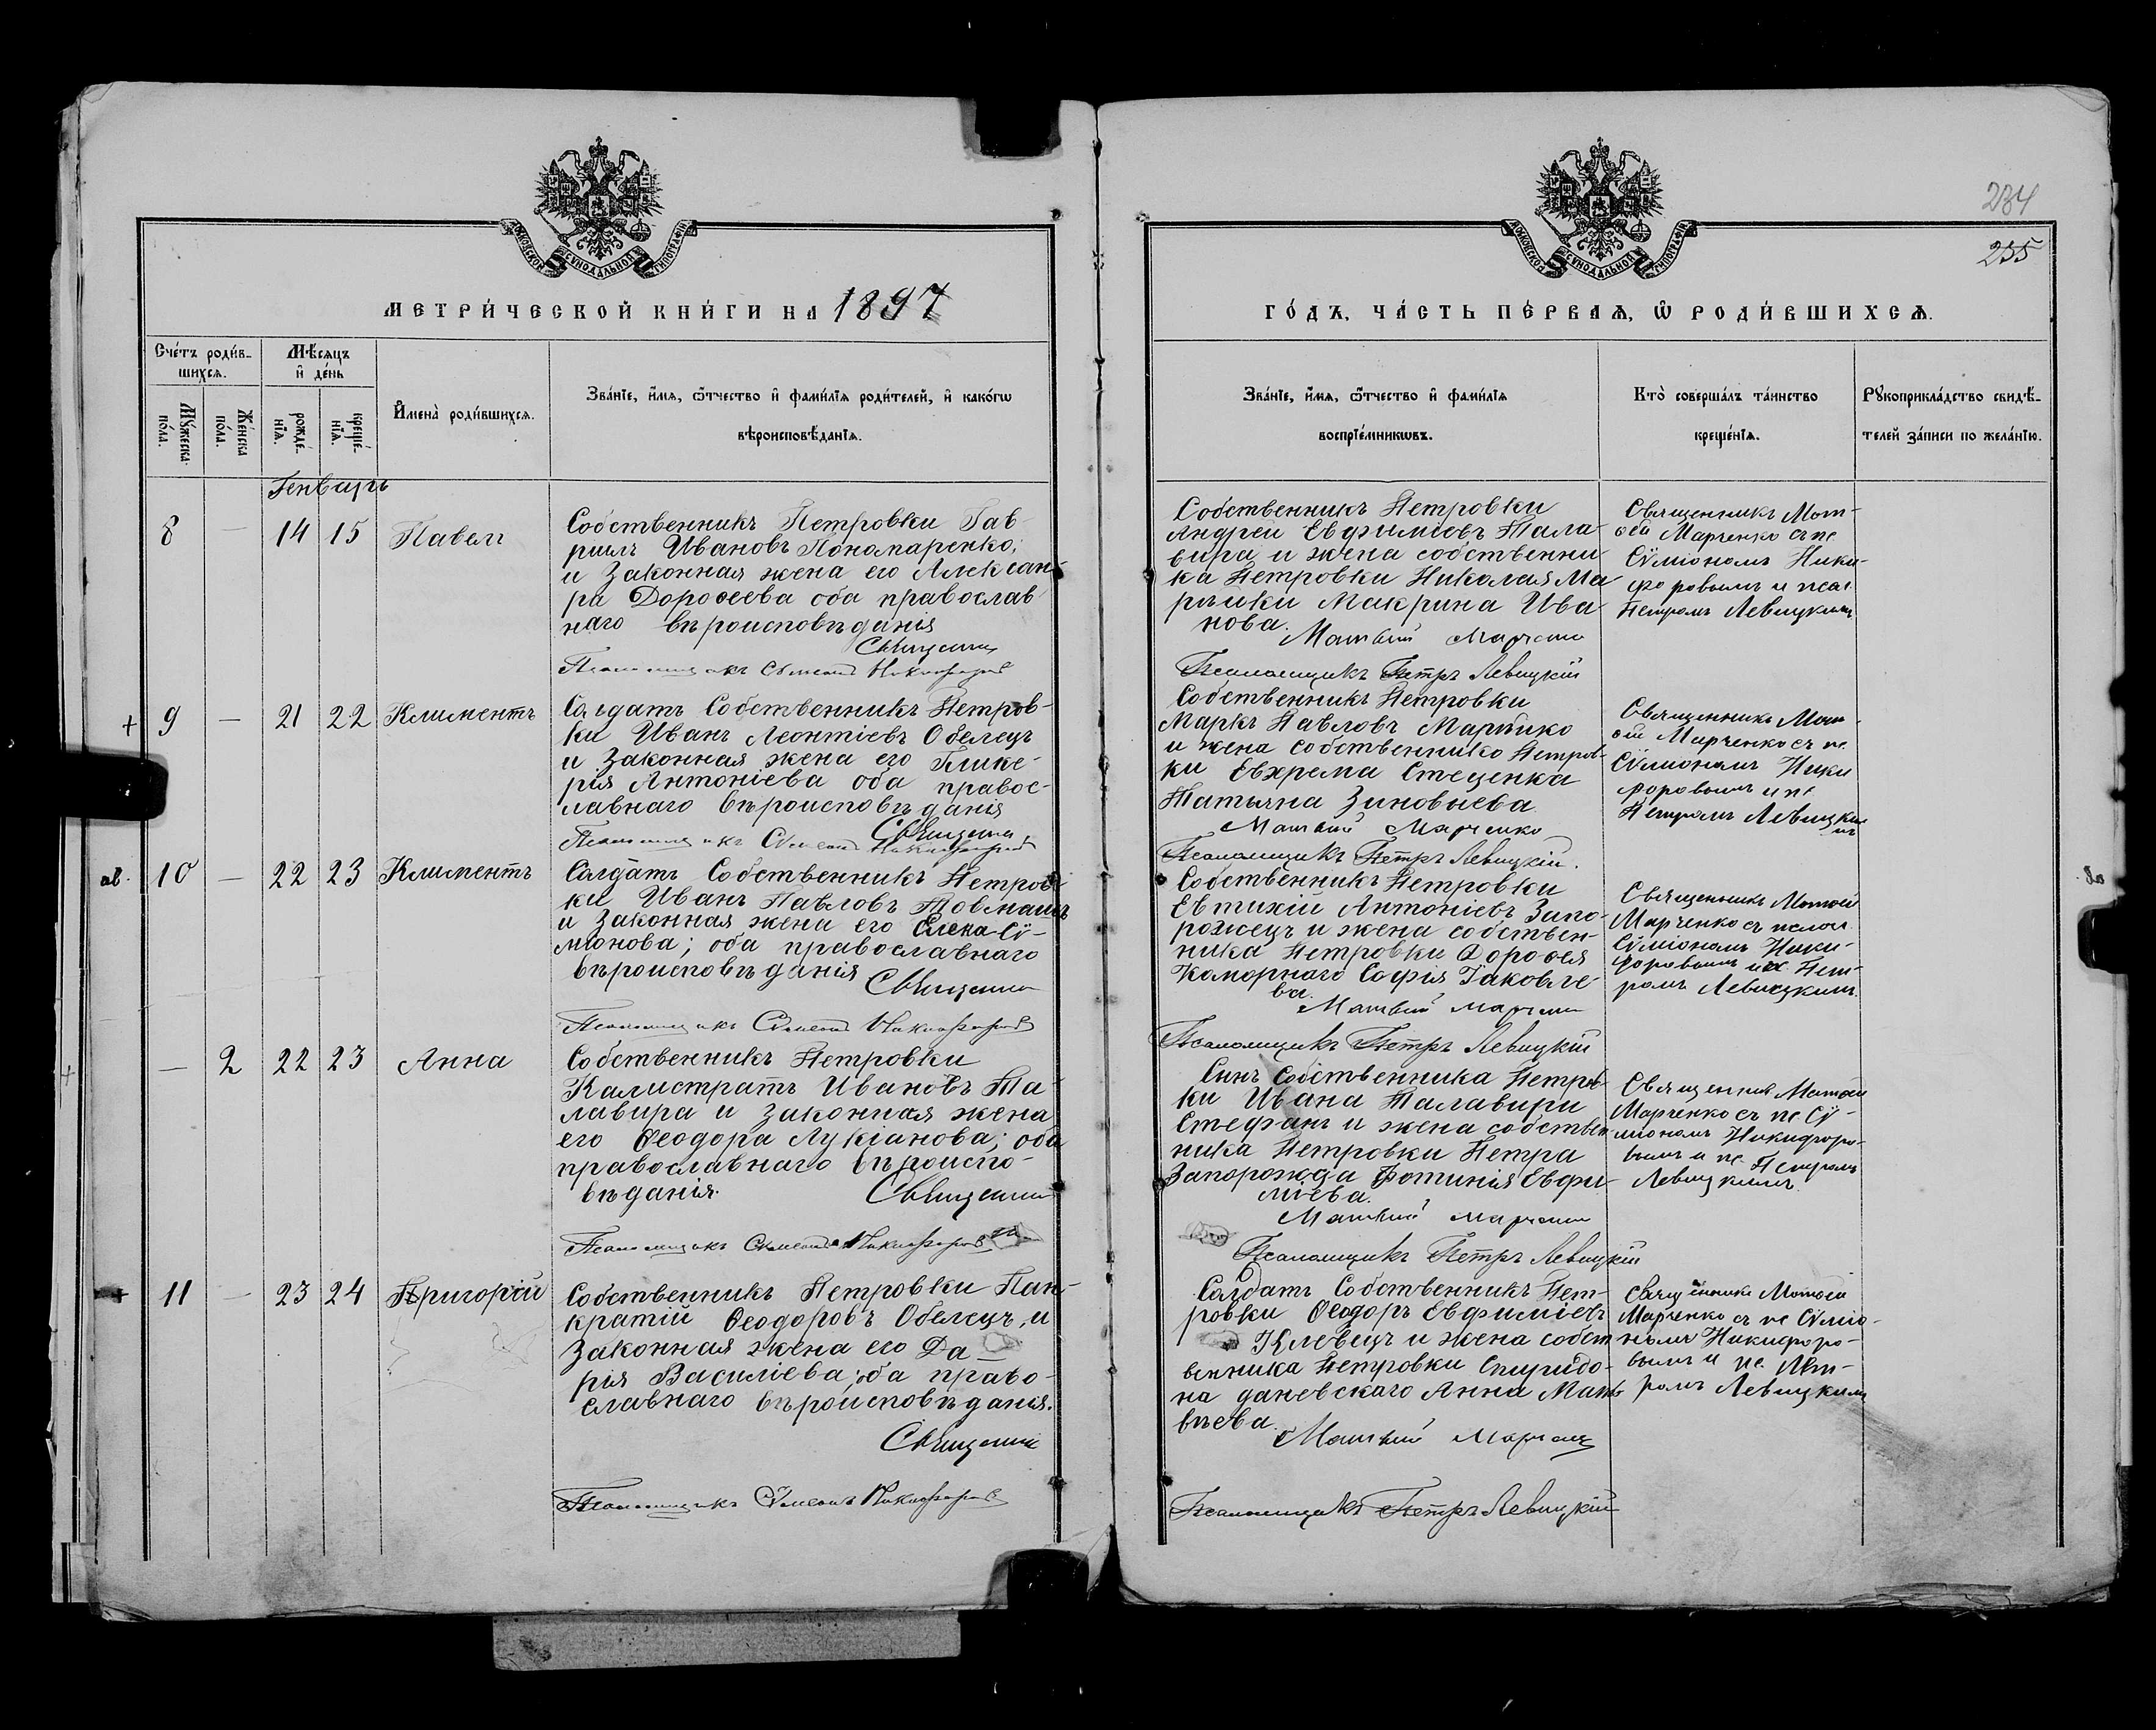 234
255
МОСКОВСКОЙ СѴНОДАЛЬНОЙ ТИПОГРАФІИ
МОСКОВСКОЙ СѴНОДАЛЬНОЙ ТИПОГРАФІИ
МЕТРИ́ЧЕСКОЙ КНИ́ГИ НА 1897
ГО́ДЪ, ЧА́СТЬ ПЕ́РВАѦ, Ѡ҆ РОДИ́ВШИХСѦ.
Сче́тъ роди́в-
шихсѧ.
Мѣ́сѧцъ
и҆ де́нь
Мꙋ́жеска
по́ла.
Же́нска
по́ла.
рожде́-
нїѧ.
креще́-
нїѧ.
И҆мена̀ роди́вшихсѧ.
Зва́нїе, и҆́мѧ, ѻ҆́тчество и҆ фами́лїѧ роди́телей, и҆ како́гѡ
вѣроисповѣ́данїѧ.
Зва́нїе, и҆́мѧ, ѻ҆́тчество и҆ фами́лїѧ
воспрїе́мникѡвъ.
Кто̀ соверша́лъ та́инство
креще́нїѧ.
Рꙋкоприкла́дство свидѣ́-
телей за́писи по жела́нїю.
Генварь
8 — 14 15 Павелъ
Собственникъ Петровки Гав-
риилъ Ивановъ Пономаренко;
и законная жена его Алексан-
ра Дороѳеева оба православ-
наго вѣроисповѣданія
Священникъ
Псаломщикъ Сѵмеонъ Никифоровъ
Собственникъ Петровки
Андрей Евфиміевъ Тала-
вира и жена собственни-
ка Петровки Николая Ма-
рѣики Макрина Ива-
нова.
Матвій Марченко
Псаломщикъ Петръ Левицкій
Священникъ Мат-
ѳій Марченко съ пс
Сѵміономъ Ники-
форовымъ и псал
Петромъ Левицкимъ
+ 9 — 21 22 Климентъ
Солдатъ Собственникъ Петров-
ки Иванъ Леонтіевъ Обелецъ
и законная жена его Глике-
рія Антоніева оба правос-
лавнаго вѣроисповѣданія
Священникъ
Псаломщикъ Сѵмеонъ Никифоровъ
Собственникъ Петровки
Маркъ Павловъ
и жена собственника Петров-
ки Евхрема Стеценка
Татьяна Зиновьева
Матвій Марченко
Псаломщикъ Петръ Левицкій.
Священникъ Мат-
ѳій Марченко съ пс.
Сѵміономъ Ники
форовымъ и пс
Петромъ Левицким
мъ
ав. 10 — 22 23 Климентъ
Солдатъ Собственникъ Петров-
ки Иванъ Павловъ Товмашъ
и законная жена его Елена Сѵ-
міонова; оба православнаго
вѣроисповѣданія
Священникъ
Псаломщикъ Сѵмеонъ Никифоровъ
Собственникъ Петровки
Евтихій Антоніевъ Запо-
рожецъ и жена собствен-
ника Петровки Дороѳея
Коморнаго Софія Іаковле-
ва.
Матвій Марченко
Псаломщикъ Петръ Левицкій
Священникъ Матѳій
Марченко съ псалом
Сѵміономъ Ники-
форовымъ и пс Пет-
ромъ Левицкимъ.
— 2 22 23 Анна
Собственникъ Петровки
Калистратъ Ивановъ Та-
лавира и законная жена
его Ѳеодора Лукіанова; оба
православнаго вѣроиспо-
вѣданія.
Священникъ
Псаломщикъ Сѵмеонъ Никифоровъ
Сынъ собственника Петров-
ки Ивана Талавири
Стефанъ и жена собствен-
ника Петровки Петра
Запорожца Фотинія Евфи-
міева.
Матвій Марченко
Псаломщикъ Петръ Левицкій
Священникъ Матѳій
Марченко съ пс Сѵ-
міономъ Никифоро-
вымъ и пс. Петромъ
Левицкимъ.
+ 11 — 23 24 Григорій
Собственникъ Петровки Пан-
кратій Ѳеодоровъ Обелецъ, и
законная жена его Да-
рія Василіева; оба право-
славнаго вѣроисповѣданія.
Священникъ
Псаломщикъ Сѵмеонъ Никифоровъ
Солдатъ Собственникъ Пет-
ровки Ѳеодоръ Евфиміевъ
Клевецъ и жена собст
венника Петровки Спиридо-
на Даневскаго Анна Мат-
вѣева.
Матвій Марченко
Псаломщикъ Петръ Левицкій
Священникъ Матѳій
Марченко съ пс Сѵміо-
номъ Никифоро-
вымъ и пс. Пет-
ромъ Левицкимъ